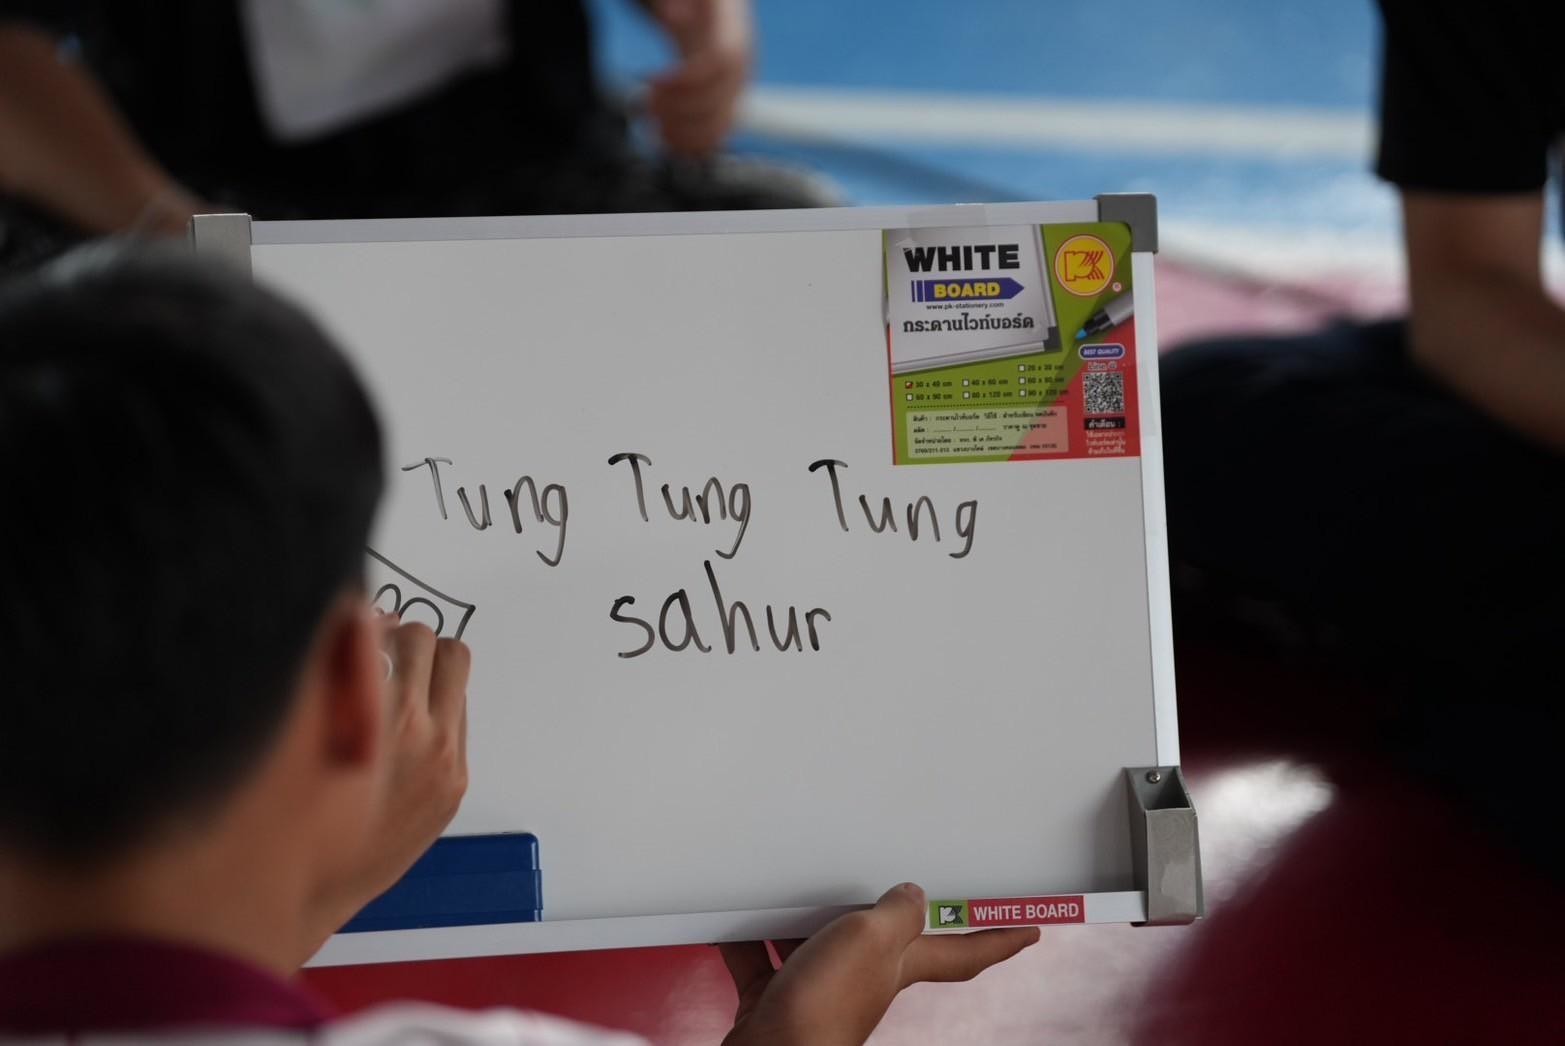 WHITE
BOARD
www.pk-stationery.com
กระดานไวท์บอร์ด
BEST QUALITY
Line @
20 x 30 cm
30 x 40 cm 40 x 60 cm 60 x 80 cm
60 x 90 cm 80 x 120 cm 90 x 120 cm
คำเตือน :
Tung Tung Tung
sahur
WHITE BOARD